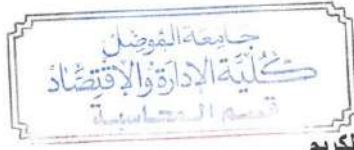 جامعة الموصل
كلية الإدارة والاقتصاد
قسم المحاسبة
الكريم